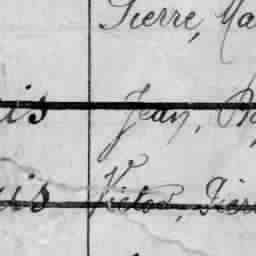 Pierre, Ma
is Jean, B
is Victor, Pier